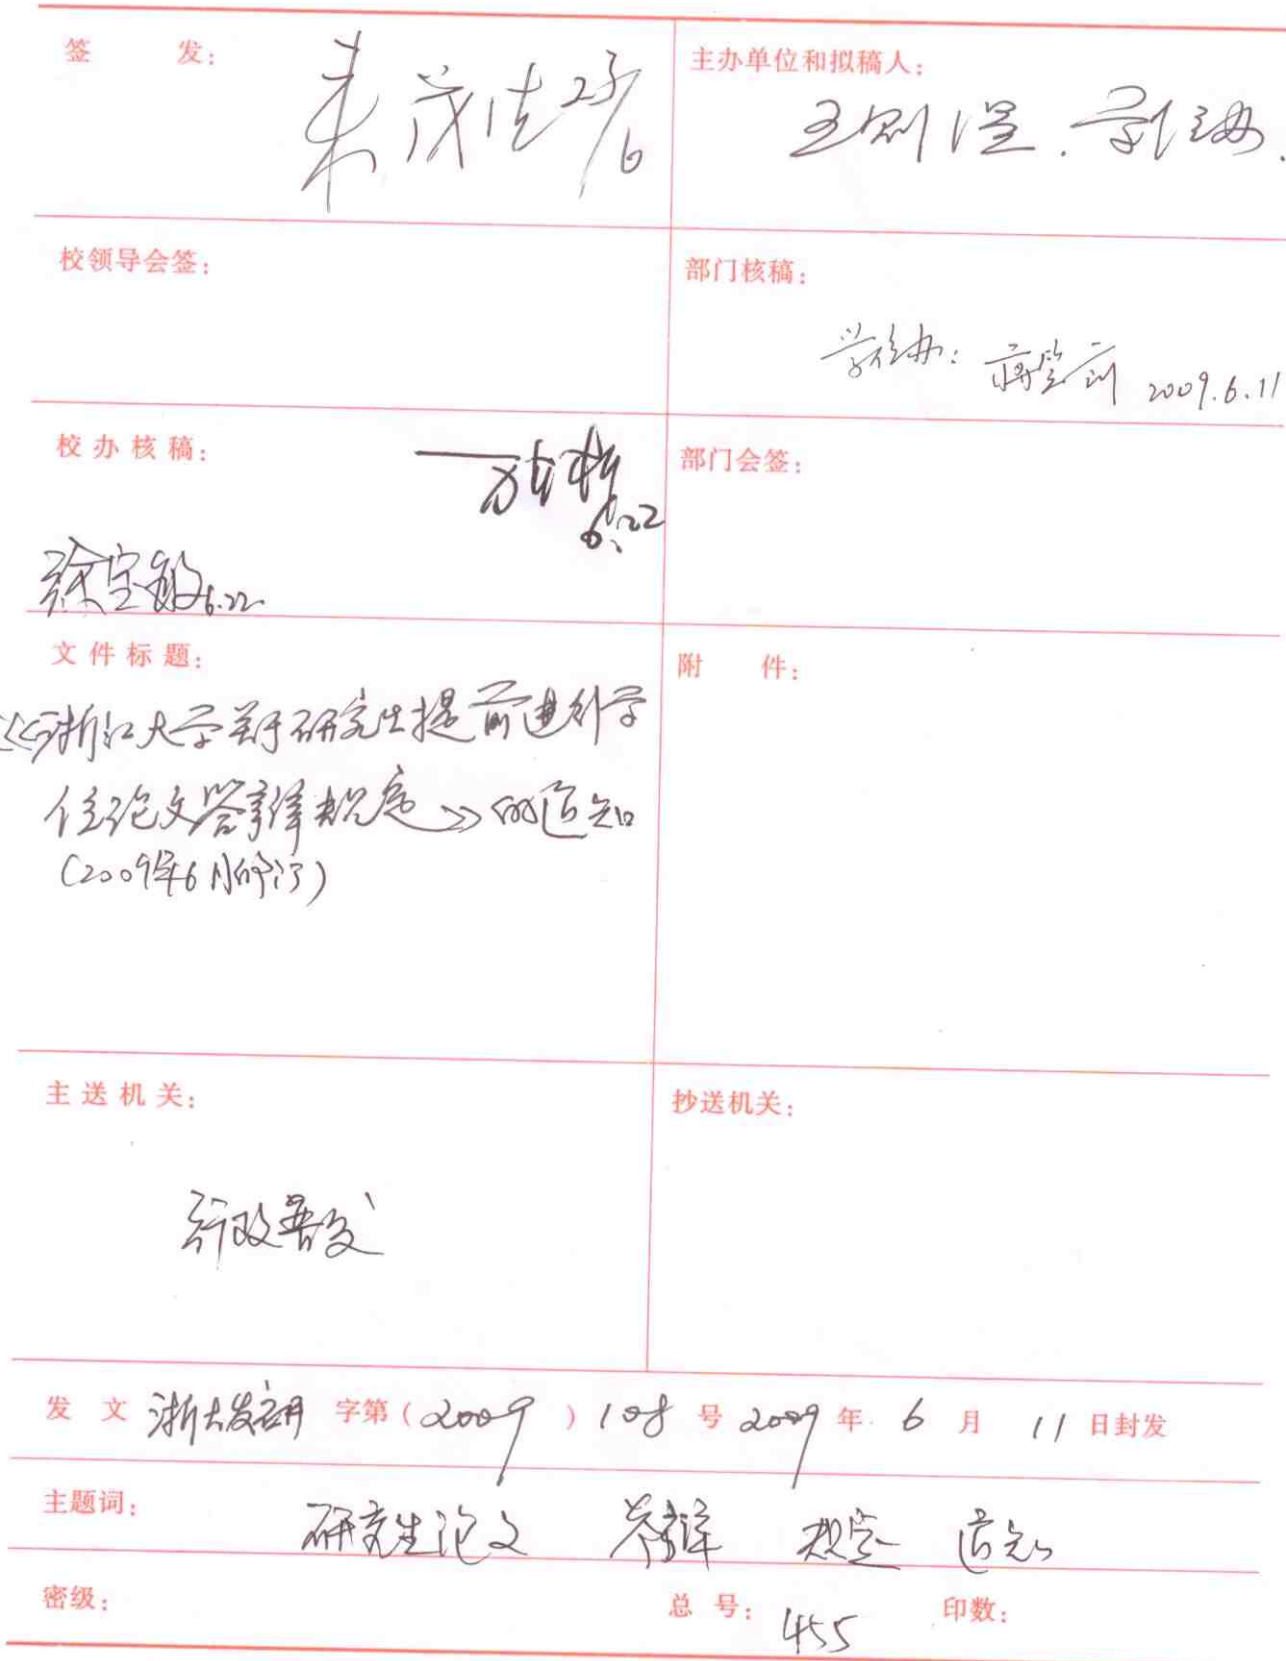 签 发: 来茂德 23/6
主办单位和拟稿人: 学位办
校领导会签:
部门核稿:
学位办: 2009.6.11
校办核稿:
6.22
徐宝敏 6.22
部门会签:
文件标题:
《浙江大学关于研究生提前进行学
位论文答辩规定》的通知
(2009年6月修订)
附 件:
主送机关:
行政普发
抄送机关:
发 文 浙大发研 字第(2009)108 号 2009 年 6 月 11 日封发
主题词: 研究生论文 答辩 规定 通知
密级: 总 号: 455 印数: